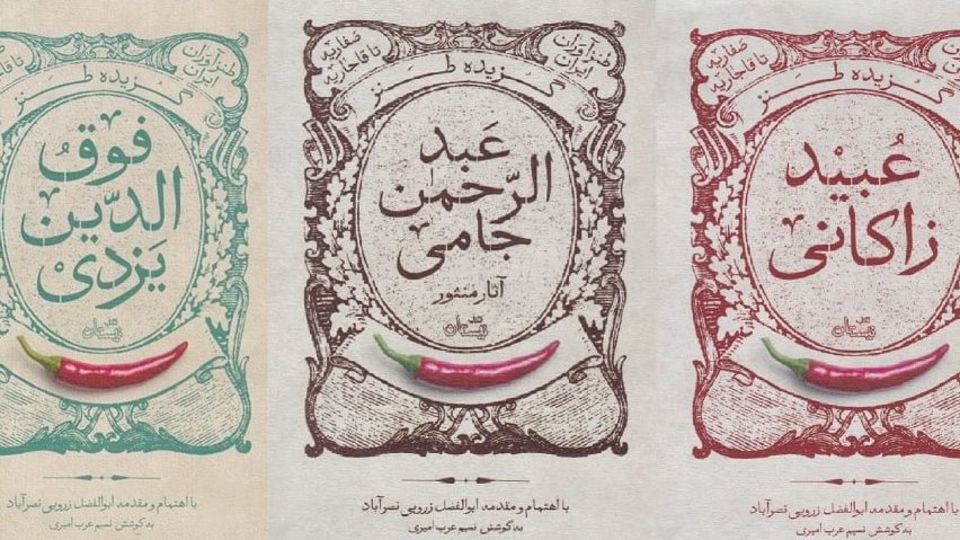 صفاریه
تا قاجاریه
گزیده طنز
عُبیْد
زاکانی
نیستان
با اهتمام و مقدمه ابوالفضل زرویی نصرآباد
به کوشش نسیم عرب امیری
طنزآوران
ایران
صفاریه
تا قاجاریه
گزیده طنز
عَبد
الرّحمن
جامی
آثار منثور
نیستان
با اهتمام و مقدمه ابوالفضل زرویی نصرآباد
به کوشش نسیم عرب امیری
طنزآوران
ایران
گزیده طنز
فوقُ
الدّین
یَزدیْ
نیستان
با اهتمام و مقدمه ابوالفضل زرویی نصرآباد
به کوشش نسیم عرب امیری